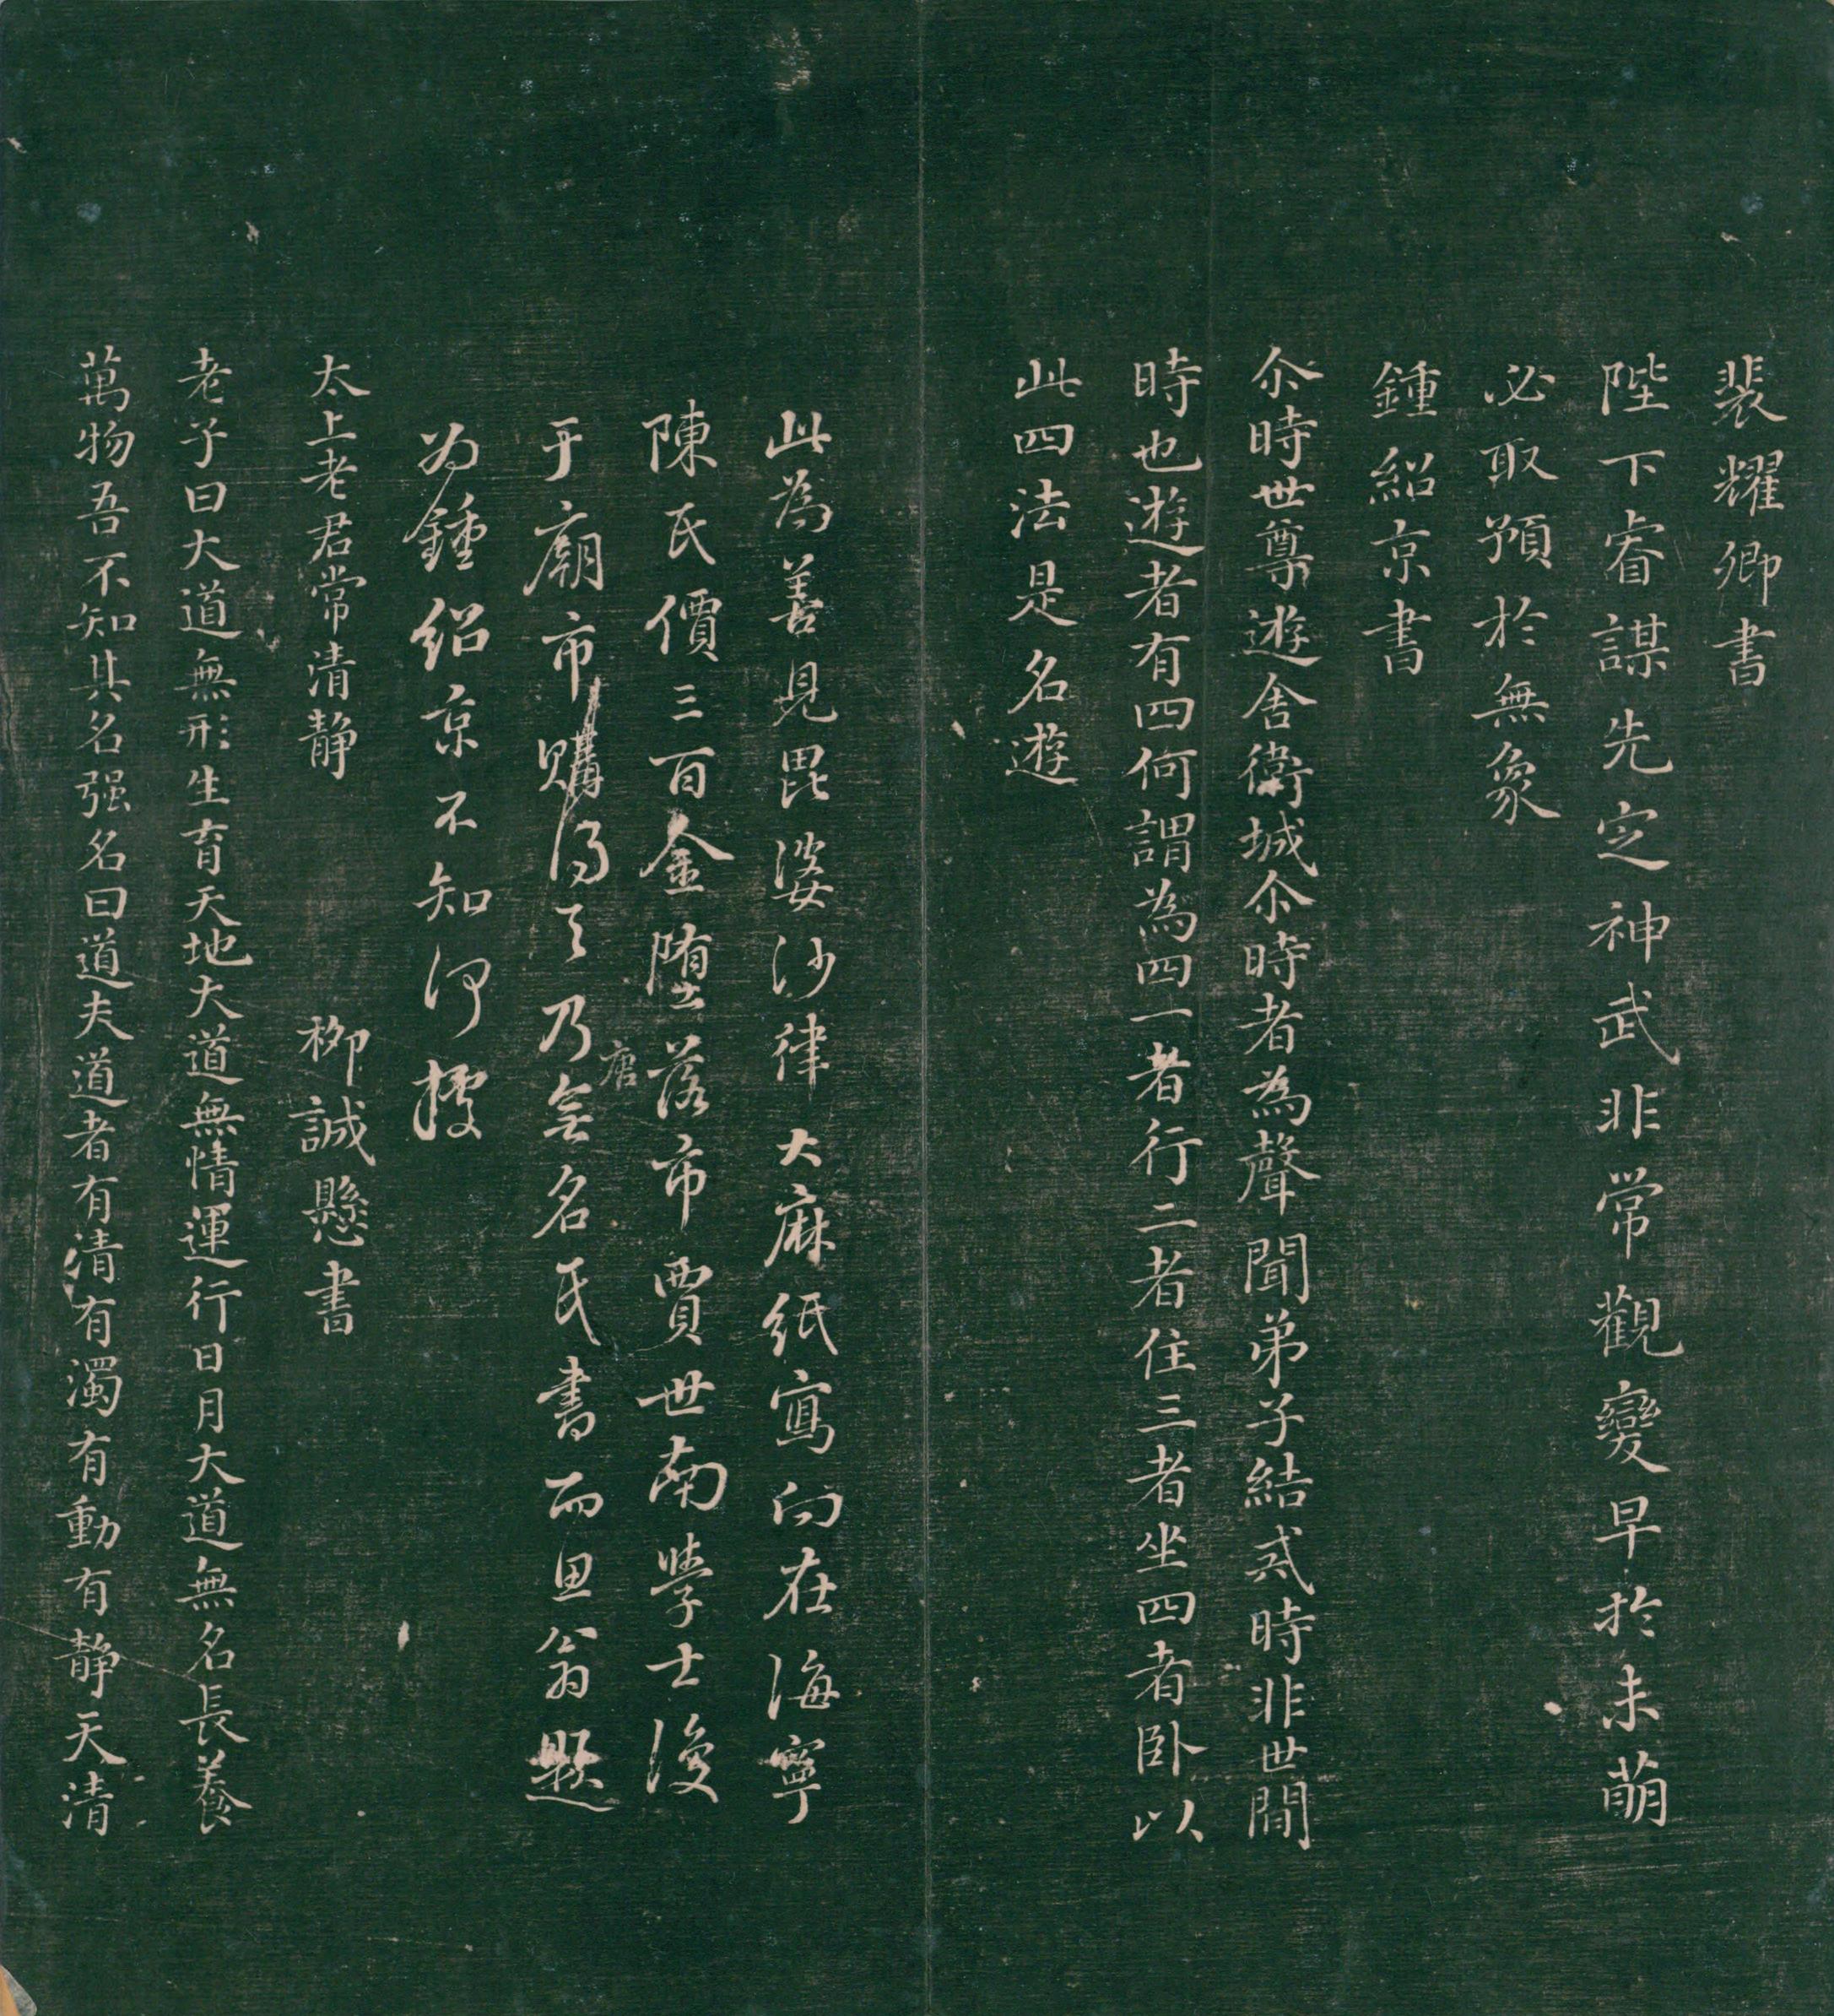 裴耀卿書
陛下睿謀先定神武非常觀變早於未萌
必取預於無象
鍾紹京書
尒時世尊遊舍衛城尒時者為聲聞弟子結戒時非世間
時也遊者有四何謂為四一者行二者住三者坐四者卧以
此四法是名遊
此為善見毘婆沙律大麻紙寫向在海寧
陳氏價三百金堕落市賈世南學士後
于廟市購得之乃無名氏書而思翁題
唐
為鍾紹京不知何據
太上老君常清静 柳誠懸書
老子曰大道無形生育天地大道無情運行日月大道無名長養
萬物吾不知其名强名曰道夫道者有清有濁有動有静天清